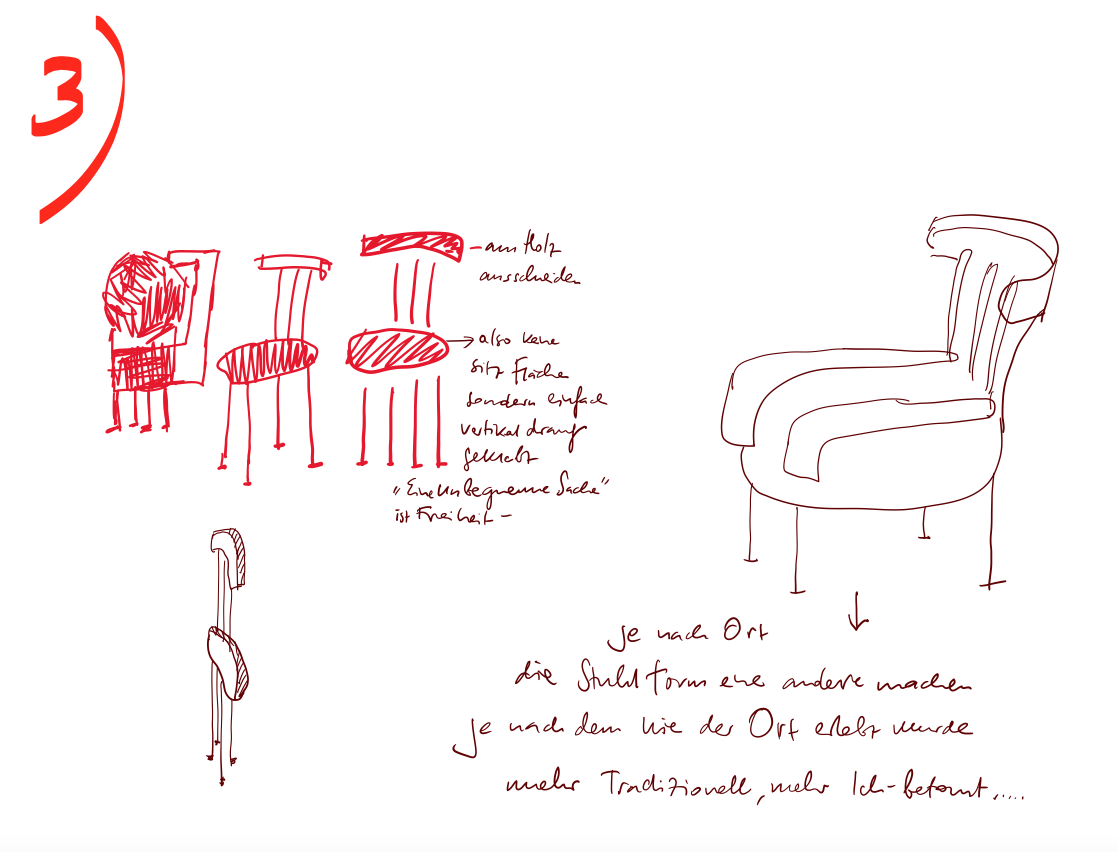 3)
- aus Holz
ausschneiden
also keine
sitz Fläche
sondern einfach
vertikal drauf
geklebt
"Eine Unbequeme Sache"
ist Freiheit -
je nach Ort
die Stuhl form eine andere machen
je nach dem wie der Ort erlebt wurde
mehr Traditionell, mehr Ich-betont.....